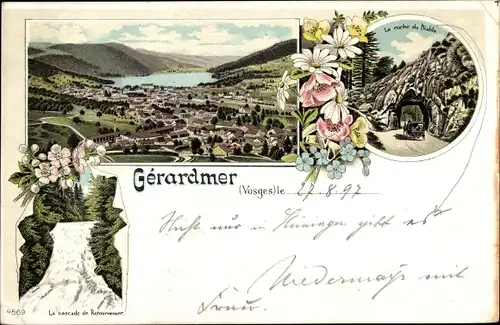 La roche du Diable
Gérardmer
(Vosges) le 27.8.97
Nicht nur in Hüningen gibt es
Niedermayr mit
Frau.
4869 La cascade de Retournemer.